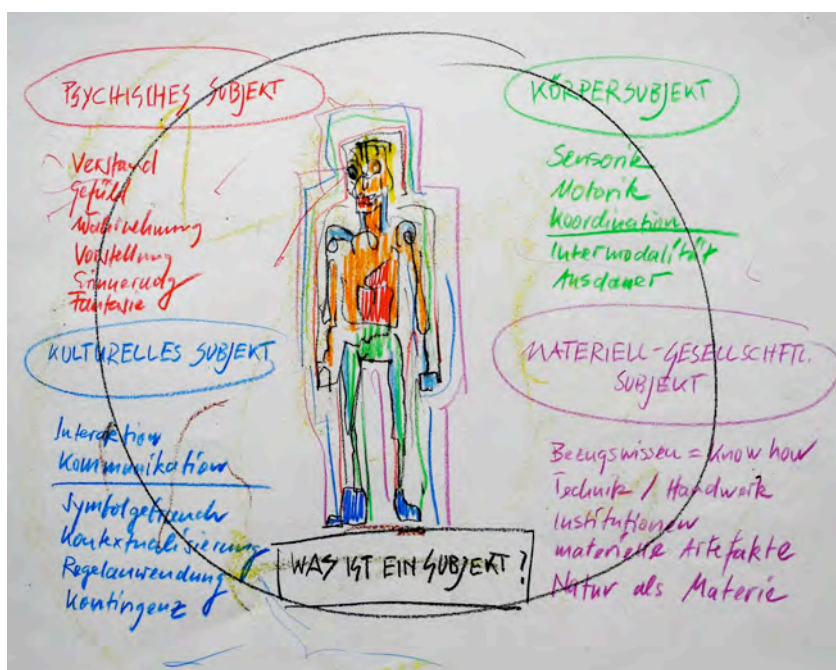 PSYCHISCHES SUBJEKT
Verstand
Gefühl
Wahrnehmung
Vorstellung
Erinnerung
Fantasie
KÖRPERSUBJEKT
Sensorik
Motorik
Koordination
Intermodalität
Ausdauer
KULTURELLES SUBJEKT
Interaktion
Kommunikation
Symbolgebrauch
Kontextualisierung
Regelanwendung
Kontingenz
MATERIELL-GESELLSCHFTL.
SUBJEKT
Bezugswissen = Know how
Technik / Handwerk
Institutionen
materielle Artefakte
Natur als Materie
WAS IST EIN SUBJEKT?